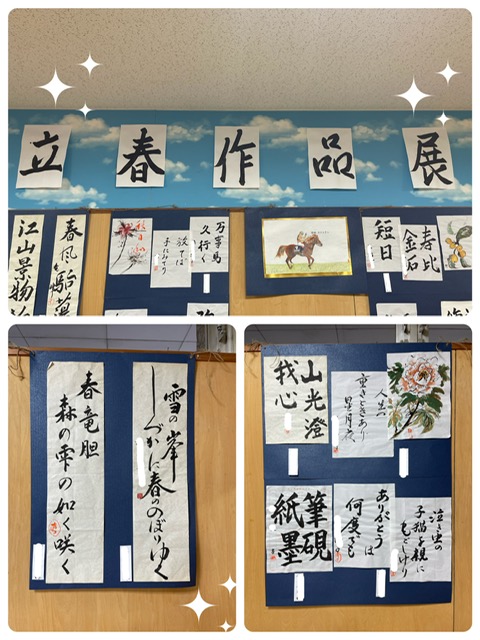 立春作品展
春風駘蕩
江山景物
万事馬
久行く
放ては
手にみてり
寿比
金石
短日
雪の峯
しづかに春ののぼりゆく
春竜胆
森の雫の如く咲く
山光澄
我心
人生
重きときあり
星月夜
筆硯
紙墨
ありがとうは
何度でも
泣き虫の
子猫を親に
もどしけり